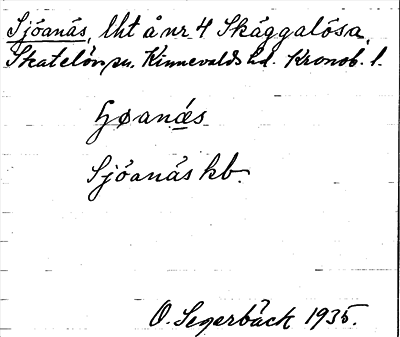 Sjöanäs, lht å nr 4 Skäggalösa,
Skatelövs sn. Kinnevalds hd. Kronob. l.
ʃøanä̱s
Sjöanäs kb.
O. Segerbäck 1935.